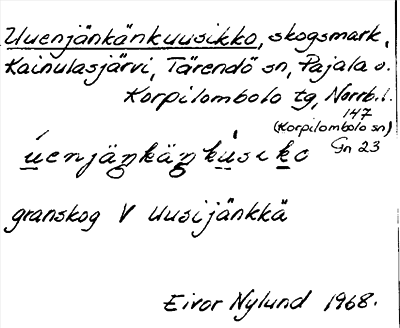 Uuenjänkänkuusikko, skogsmark,
Kainulasjärvi, Tärendö sn, Pajala o.
Korpilombolo tg, Norrb.l.
147
(Korpilombolo sn)
Gn 23
úenjäŋkäŋkùsiko
granskog V Uusijänkkä
Eivor Nylund 1968.